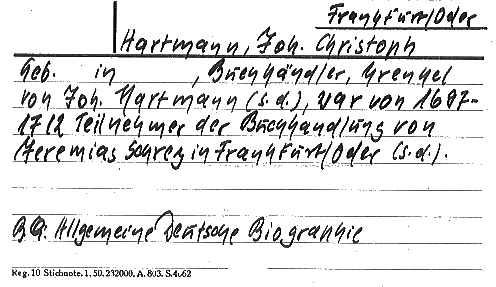 Frankfurt/Oder
Hartmann, Joh. Christoph
Geb. in , Buchhändler, Grenkel
von Joh. Hartmann (s.d.), war von 1687-
1712 Teilnehmer der Buchhandlung von
Jeremias Schrey in Frankfurt/Oder (s.d.).
BQ: Allgemeine Deutsche Biographie
Reg. 10 Stichnote. 1. 50. 232000. A. 803. S.4662